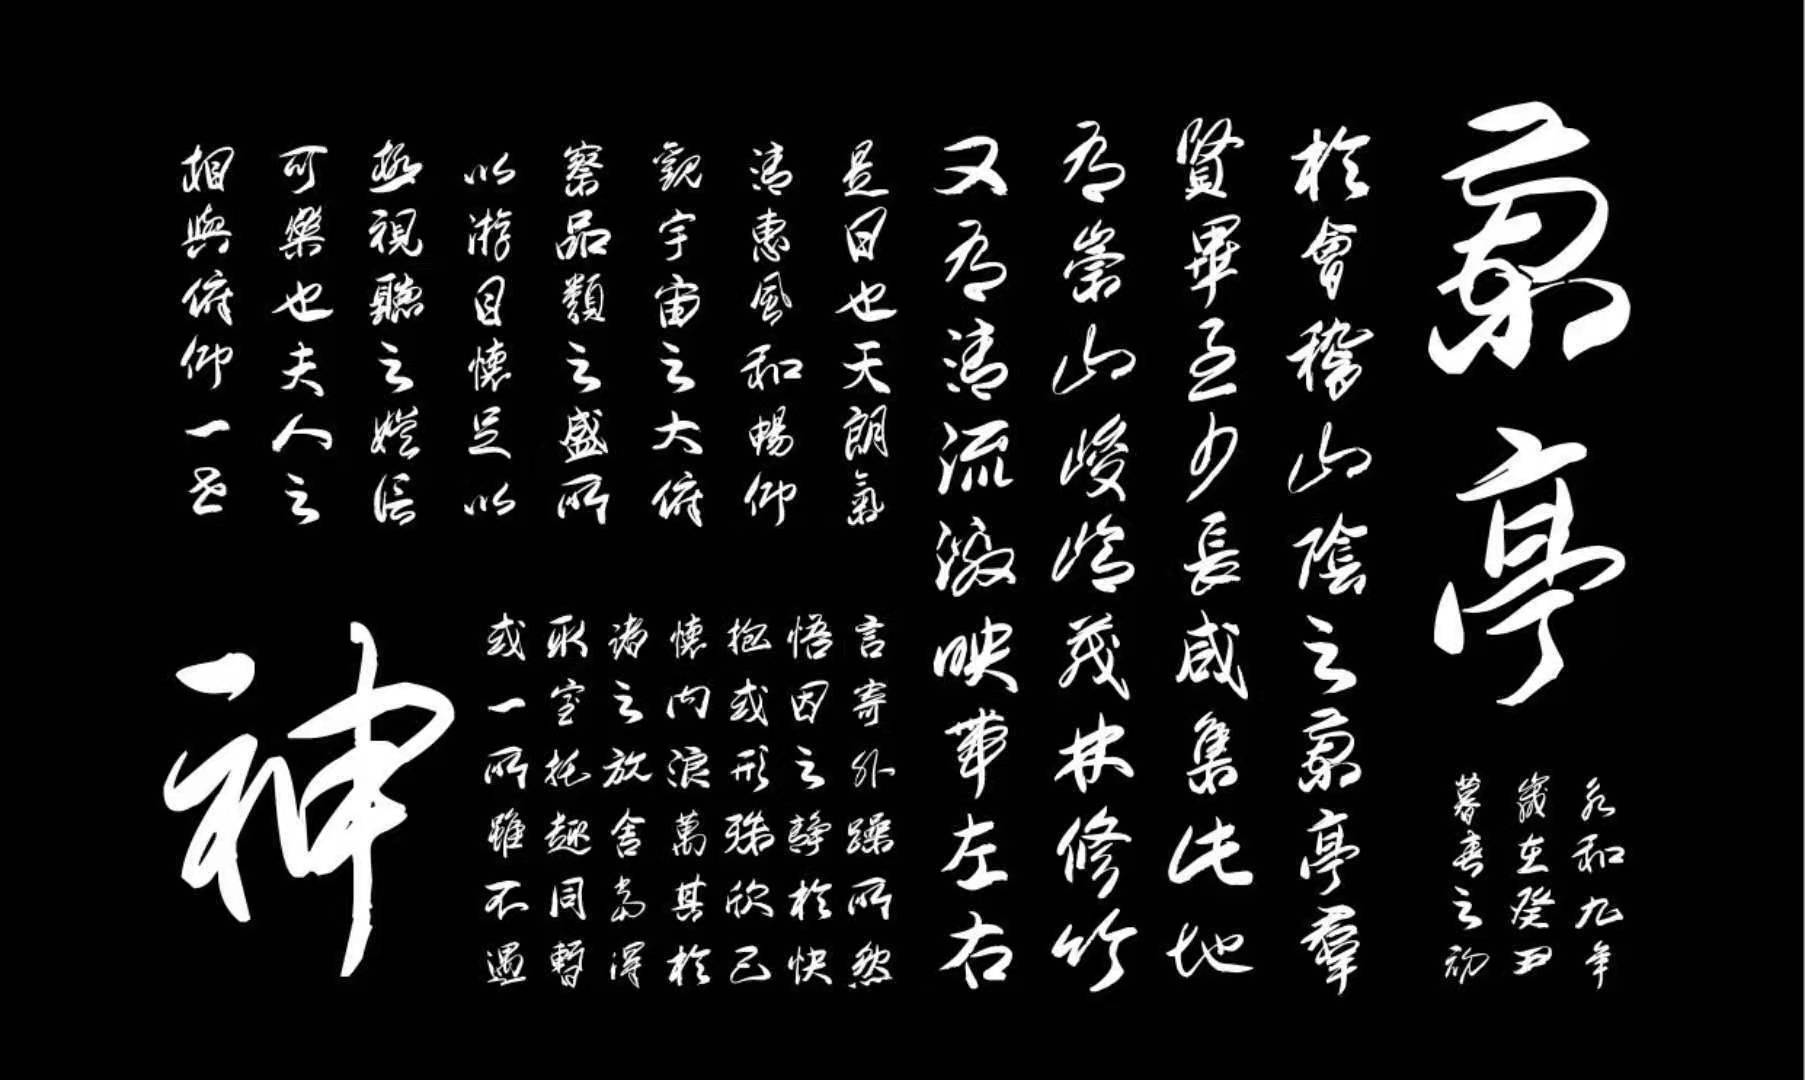 蘭亭
永和九年
歲在癸丑
暮春之初
於會稽山陰之蘭亭羣
賢畢至少長咸集此地
有崇山峻嶺茂林修竹
又有清流激映帶左右
是日也天朗氣
清惠風和暢仰
觀宇宙之大俯
察品類之盛所
以游目懷足以
極視聽之娛信
可樂也夫人之
相與俯仰一世
或取諸懷抱悟言
一室之內或因寄
所托放浪形之外
雖趣舍萬殊靜躁
不同當其欣於所
遇暫得於己快然
神